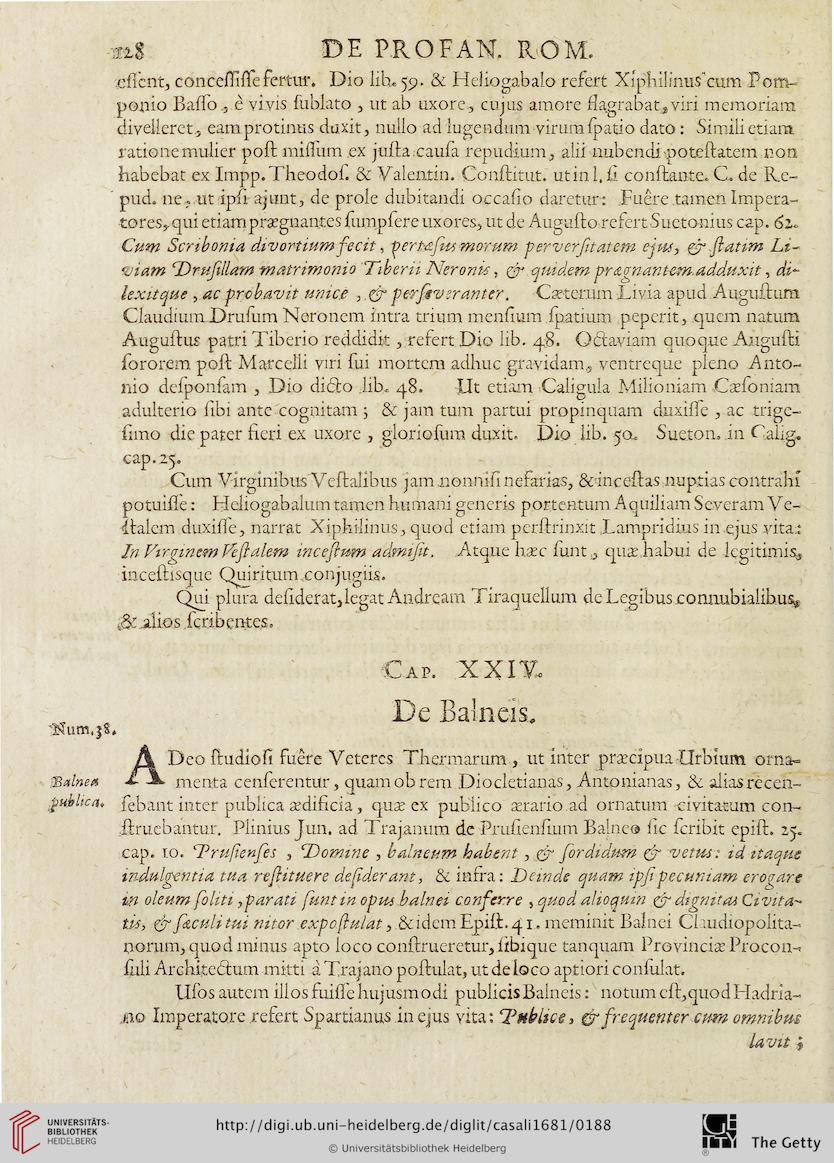 128 DE PROFAN. ROM.
eſſent, conceſſiſſe fertur. Dio lib. 59. & Heliogabalo refert Xiphilinus cum Pom-
ponio Baſſo, è vivis ſublato, ut ab uxore, cujus amore flagrabat, viri memoriam
divelleret, eam protinus duxit, nullo ad lugendum virum ſpatio dato: Simili etiam
ratione mulier poſt miſſum ex juſta cauſa repudium, alii nubendi poteſtatem non
habebat ex Impp. Theodoſ. & Valentin. Conſtitut. ut in l. ſi conſtante. C. de Re-
pud. ne, ut ipſi ajunt, de prole dubitandi occaſio daretur: Fuêre tamen Impera-
tores, qui etiam prægnantes ſumpſere uxores, ut de Auguſto refert Suetonius cap. 62.
Cum Scribonia divortium fecit, pertæſus morum perverſitatem ejus, & ſtatim Li-
viam Druſillam matrimonio Tiberii Neronis, & quidem prægnantem adduxit, di-
lexitque, ac probavit unice, & perſeveranter. Cæterum Livia apud Auguſtum
Claudium Druſum Neronem intra trium menſium ſpatium peperit, quem natum
Auguſtus patri Tiberio reddidit, refert Dio lib. 48. Octaviam quoque Auguſti
ſororem poſt Marcelli viri ſui mortem adhuc gravidam, ventreque pleno Anto-
nio deſponſam, Dio dicto lib. 48. Ut etiam Caligula Milioniam Cæſoniam
adulterio ſibi ante cognitam; & jam tum partui propinquam duxiſſe, ac trige-
ſimo die pater fieri ex uxore, glorioſum duxit. Dio lib. 50. Sueton. in Calig.
cap. 25.
Cum Virginibus Veſtalibus jam nonniſi nefarias, & inceſtas nuptias contrahi
potuiſſe: Heliogabalum tamen humani generis portentum Aquiliam Severam Ve-
ſtalem duxiſſe, narrat Xiphilinus, quod etiam perſtrinxit Lampridius in ejus vita:
In Virginem Veſtalem inceſtum admiſit. Atque hæc ſunt, quæ habui de legitimis,
inceſtisque Quiritum conjugiis.
Qui plura deſiderat, legat Andream Tiraquellum de Legibus connubialibus,
& alios ſcribentes.
CAP. XXIV.
De Balneis.
Num. 38.
ADeo ſtudioſi fuêre Veteres Thermarum, ut inter præcipua Urbium orna-
Balnea menta cenſerentur, quam ob rem Diocletianas, Antonianas, & alias recen-
publica. ſebant inter publica ædificia, quæ ex publico ærario ad ornatum civitatum con-
ſtruebantur. Plinius Jun. ad Trajanum de Pruſienſium Balneo ſic ſcribit epiſt. 25.
cap. 10. Pruſienſes, Domine, balneum habent, & ſordidum & vetus: id itaque
indulgentia tua reſtituere deſiderant, & infra: Deinde quam ipſi pecuniam erogare
in oleum ſoliti, parati ſunt in opus balnei conferre, quod alioquin & dignitas Civita-
tis, & ſæculi tui nitor expoſtulat, & idem Epiſt. 41. meminit Balnei Claudiopolita-
norum, quod minus apto loco conſtrueretur, ſibique tanquam Provinciæ Procon-
ſuli Architectum mitti à Trajano poſtulat, ut de loco aptiori conſulat.
Uſos autem illos fuiſſe hujusmodi publicis Balneis: notum eſt, quod Hadria-
no Imperatore refert Spartianus in ejus vita: Publice, & frequenter cum omnibus
lavit;
UNIVERSITÄTS-
BIBLIOTHEK
HEIDELBERG
http://digi.ub.uni-heidelberg.de/diglit/casali1681/0188
© Universitätsbibliothek Heidelberg
Getty
The Getty